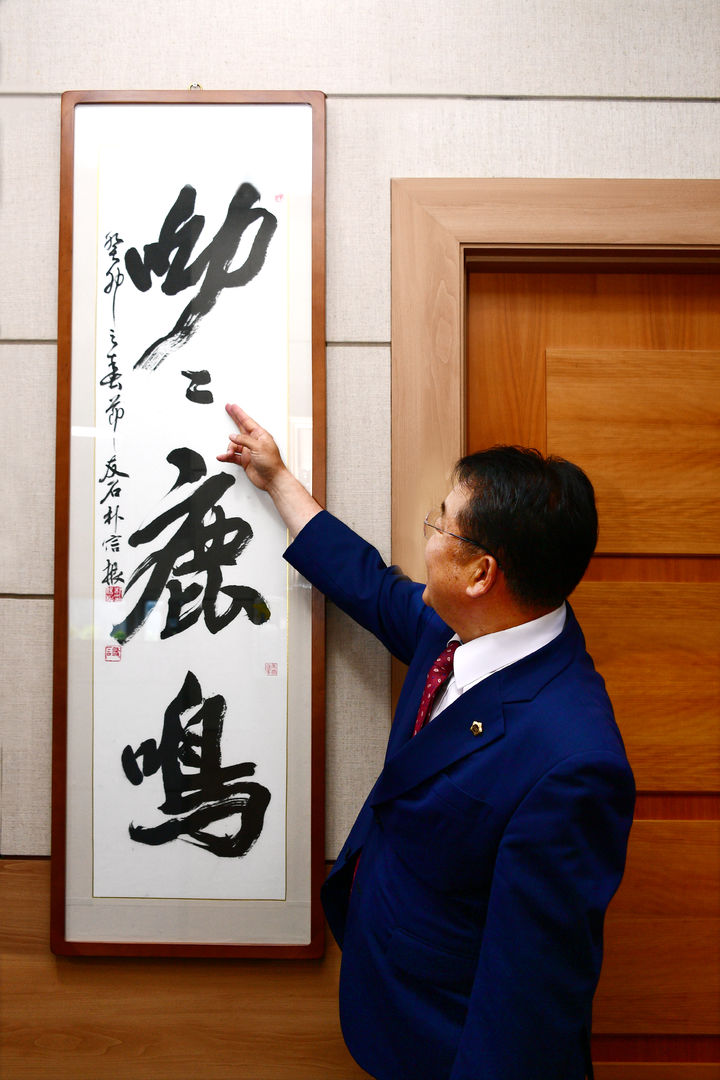 呦〻鹿鳴
癸卯之春節友石朴信根